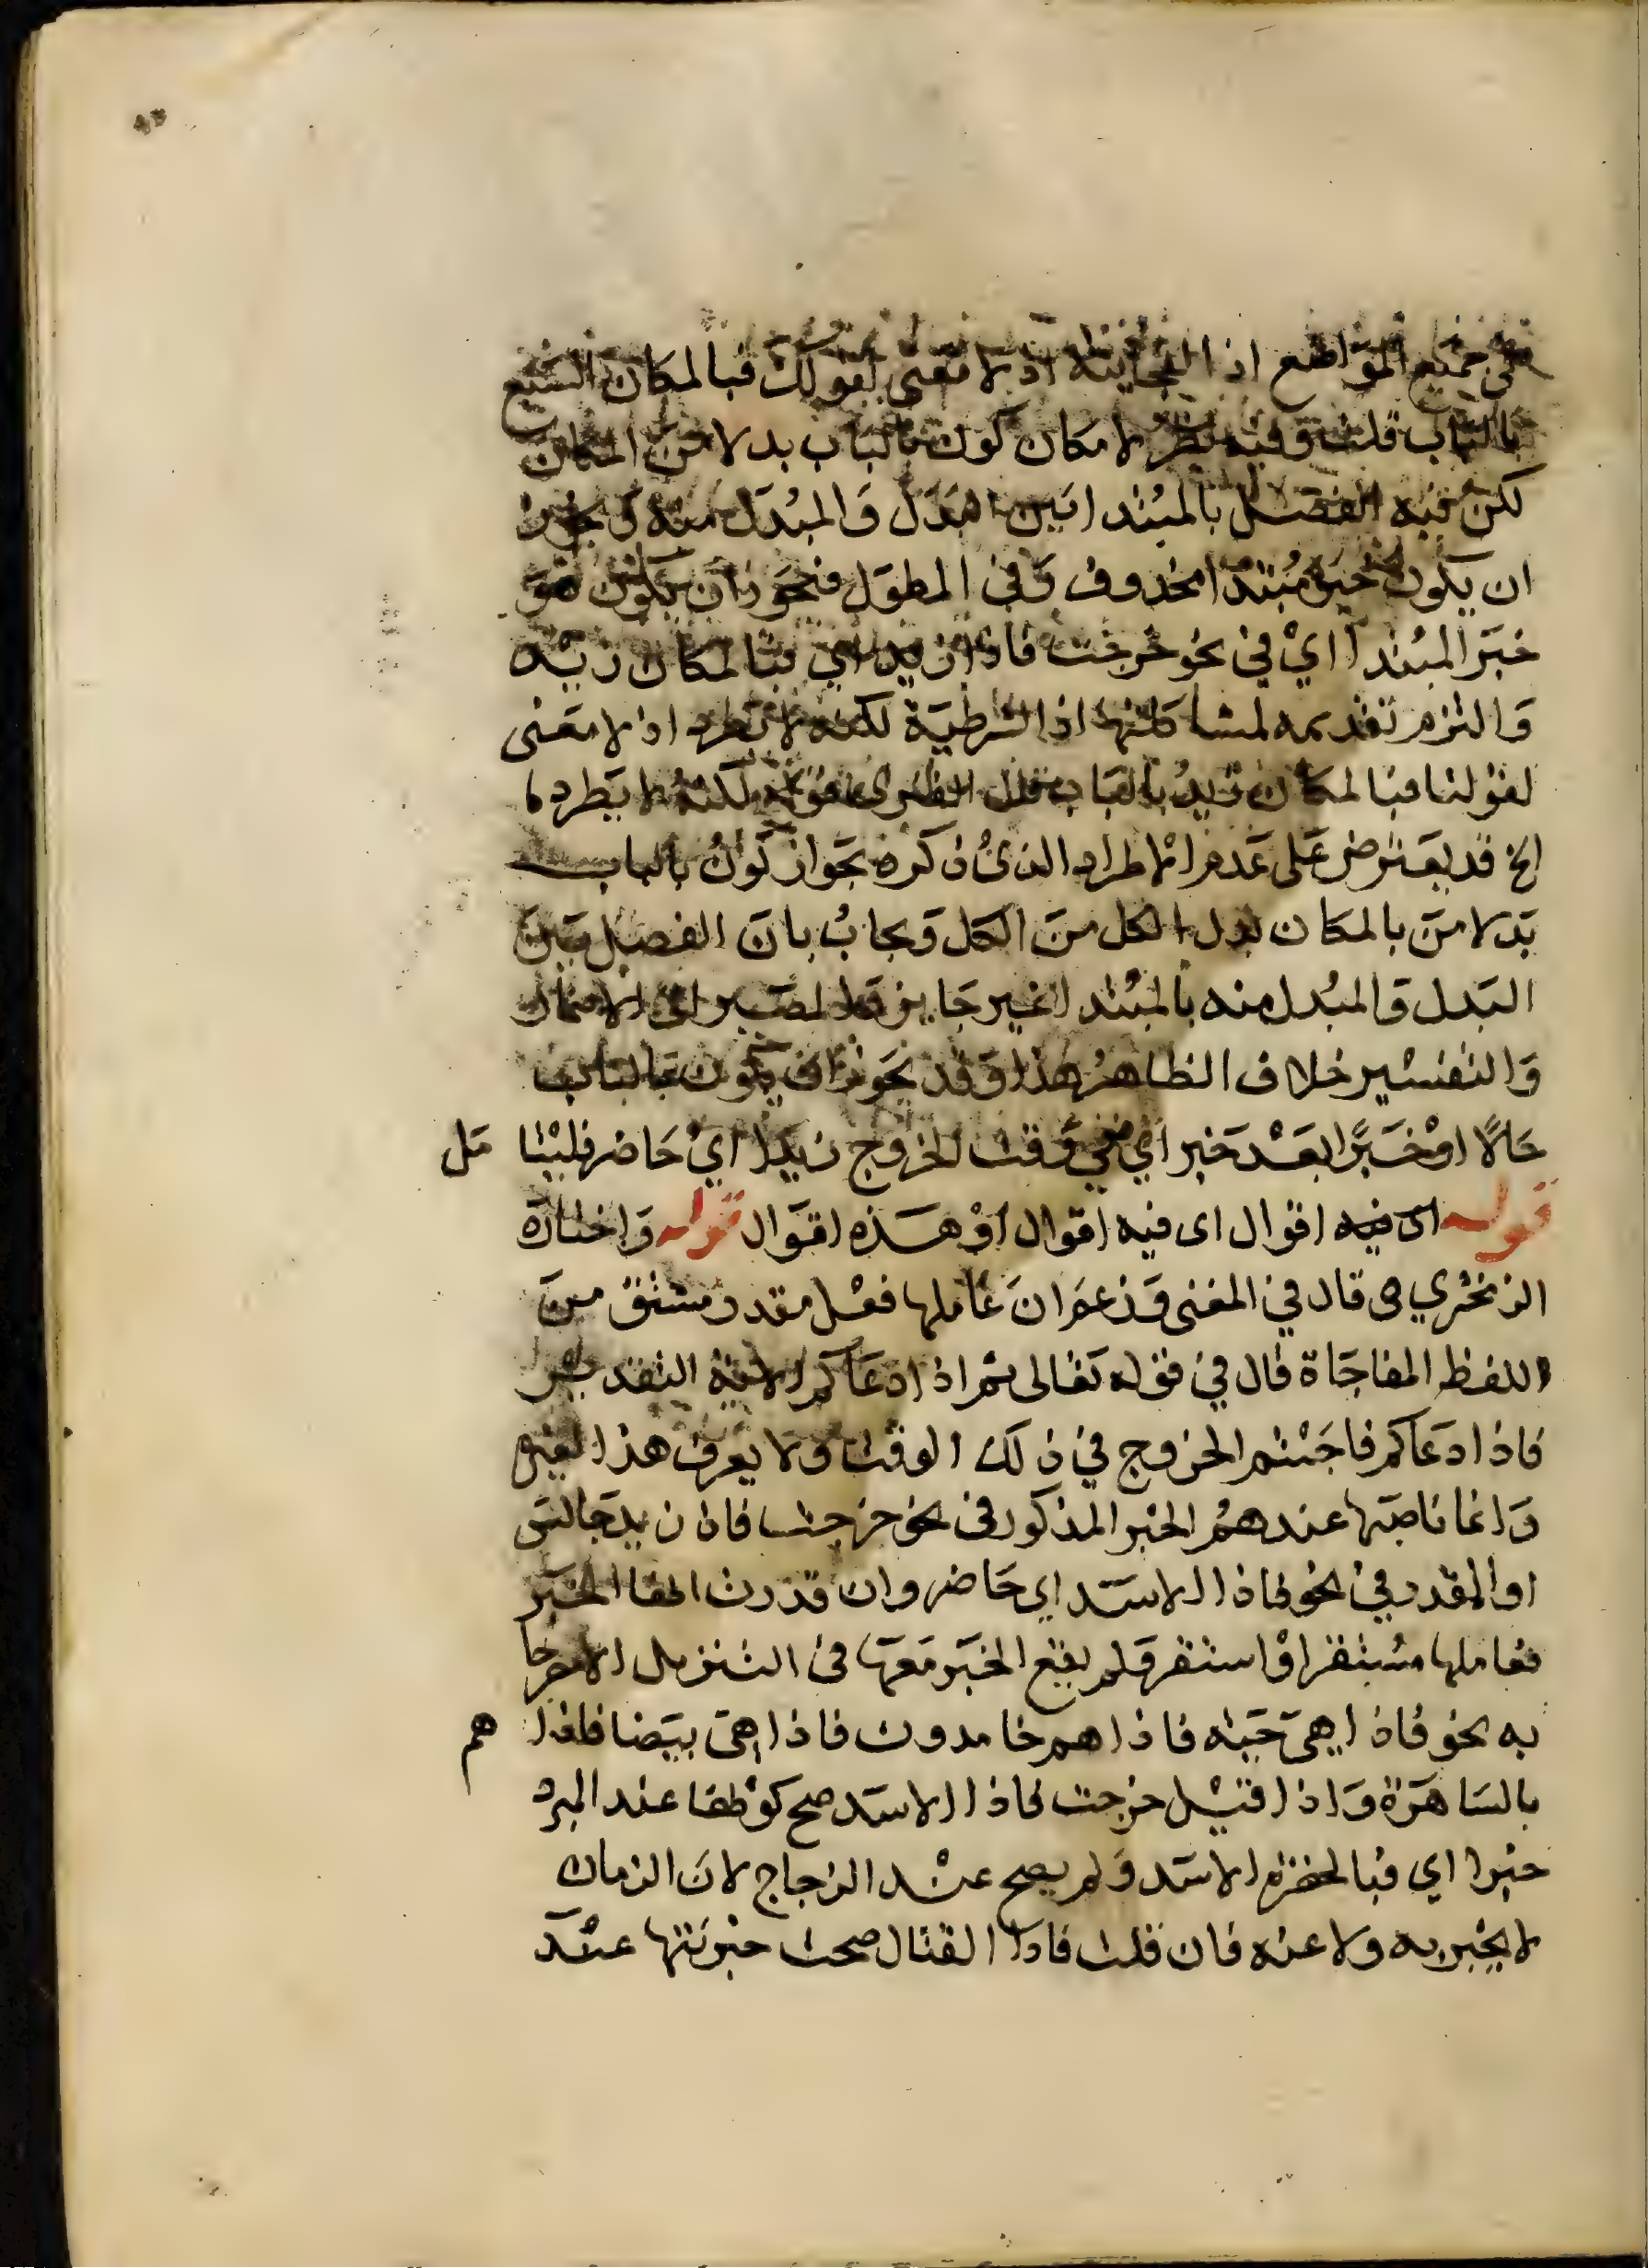 في جميع المواضع اذا الفجائية اذ لا معنى لقولك فبالمكان السبع
بالباب قلت وفيه نظر لامكان كون بالباب بدلا من المكان
لكن فيه الفصل بالمبتدا بين البدل والمبدل منه
ان يكون خبر مبتدا محذوف وفي المطول فنجوز ان يكون هو
خبر المبتدا اي في نحو خرجت فاذا زيد اي فبالمكان زيد
والتزم تقديمه لمشابهتها اذا الشرطية لكنه لا يطرد اذ لا معنى
لقولنا فبالمكان زيد بالباب قوله لكنه لا يطرد
الخ قد يعترض على عدم الاطراد الذي ذكره بجواز كون بالباب
بدلا من بالمكان بدل الكل من الكل ويجاب بان الفصل بين
البدل والمبدل منه بالمبتدا غير جايز والمصير الى الاضمار
والتفسير خلاف الظاهر هذا وقد نجوز ان يكون بالباب
حالا او خبرا بعد خبر اي ففي وقت الخروج زيدا اي حاضر فليتا مل
قوله اى فيه اقوال اى فيه اقوال او هذه اقوال قوله واختاره
الزمخشري ص قال في المغنى وزعم ان عاملها فعل مقدر مشتق من
اللفظ المفاجاة قال في قوله تعالى ثم اذا دعاكم الاية التقدير
فاذا دعاكم فاجئتم الخروج في ذلك الوقت ولا يعرف هذا لغيره
وانما ناصبها عندهم الخبر المذكور في نحو خرجت فاذا زيد جالس
او المقدر في نحو فاذا الاسد اي حاضر وان قدرت انها الخبر
فعاملها مستقر او استقر ولم يقع الخبر معها في التنزيل الا مصرحا
به نحو فاذا هي حية فاذا هم خامدون فاذا هي بيضا فاذا هم
بالساهرة واذا قيل خرجت فاذا الاسد صح كونها عند المبرد
خبرا اي فبالحضرة الاسد ولم يصح عند الزجاج لان الزمان
لا يخبر به ولا عنه فان قلت فاذا القتال صحت خبريتها عند